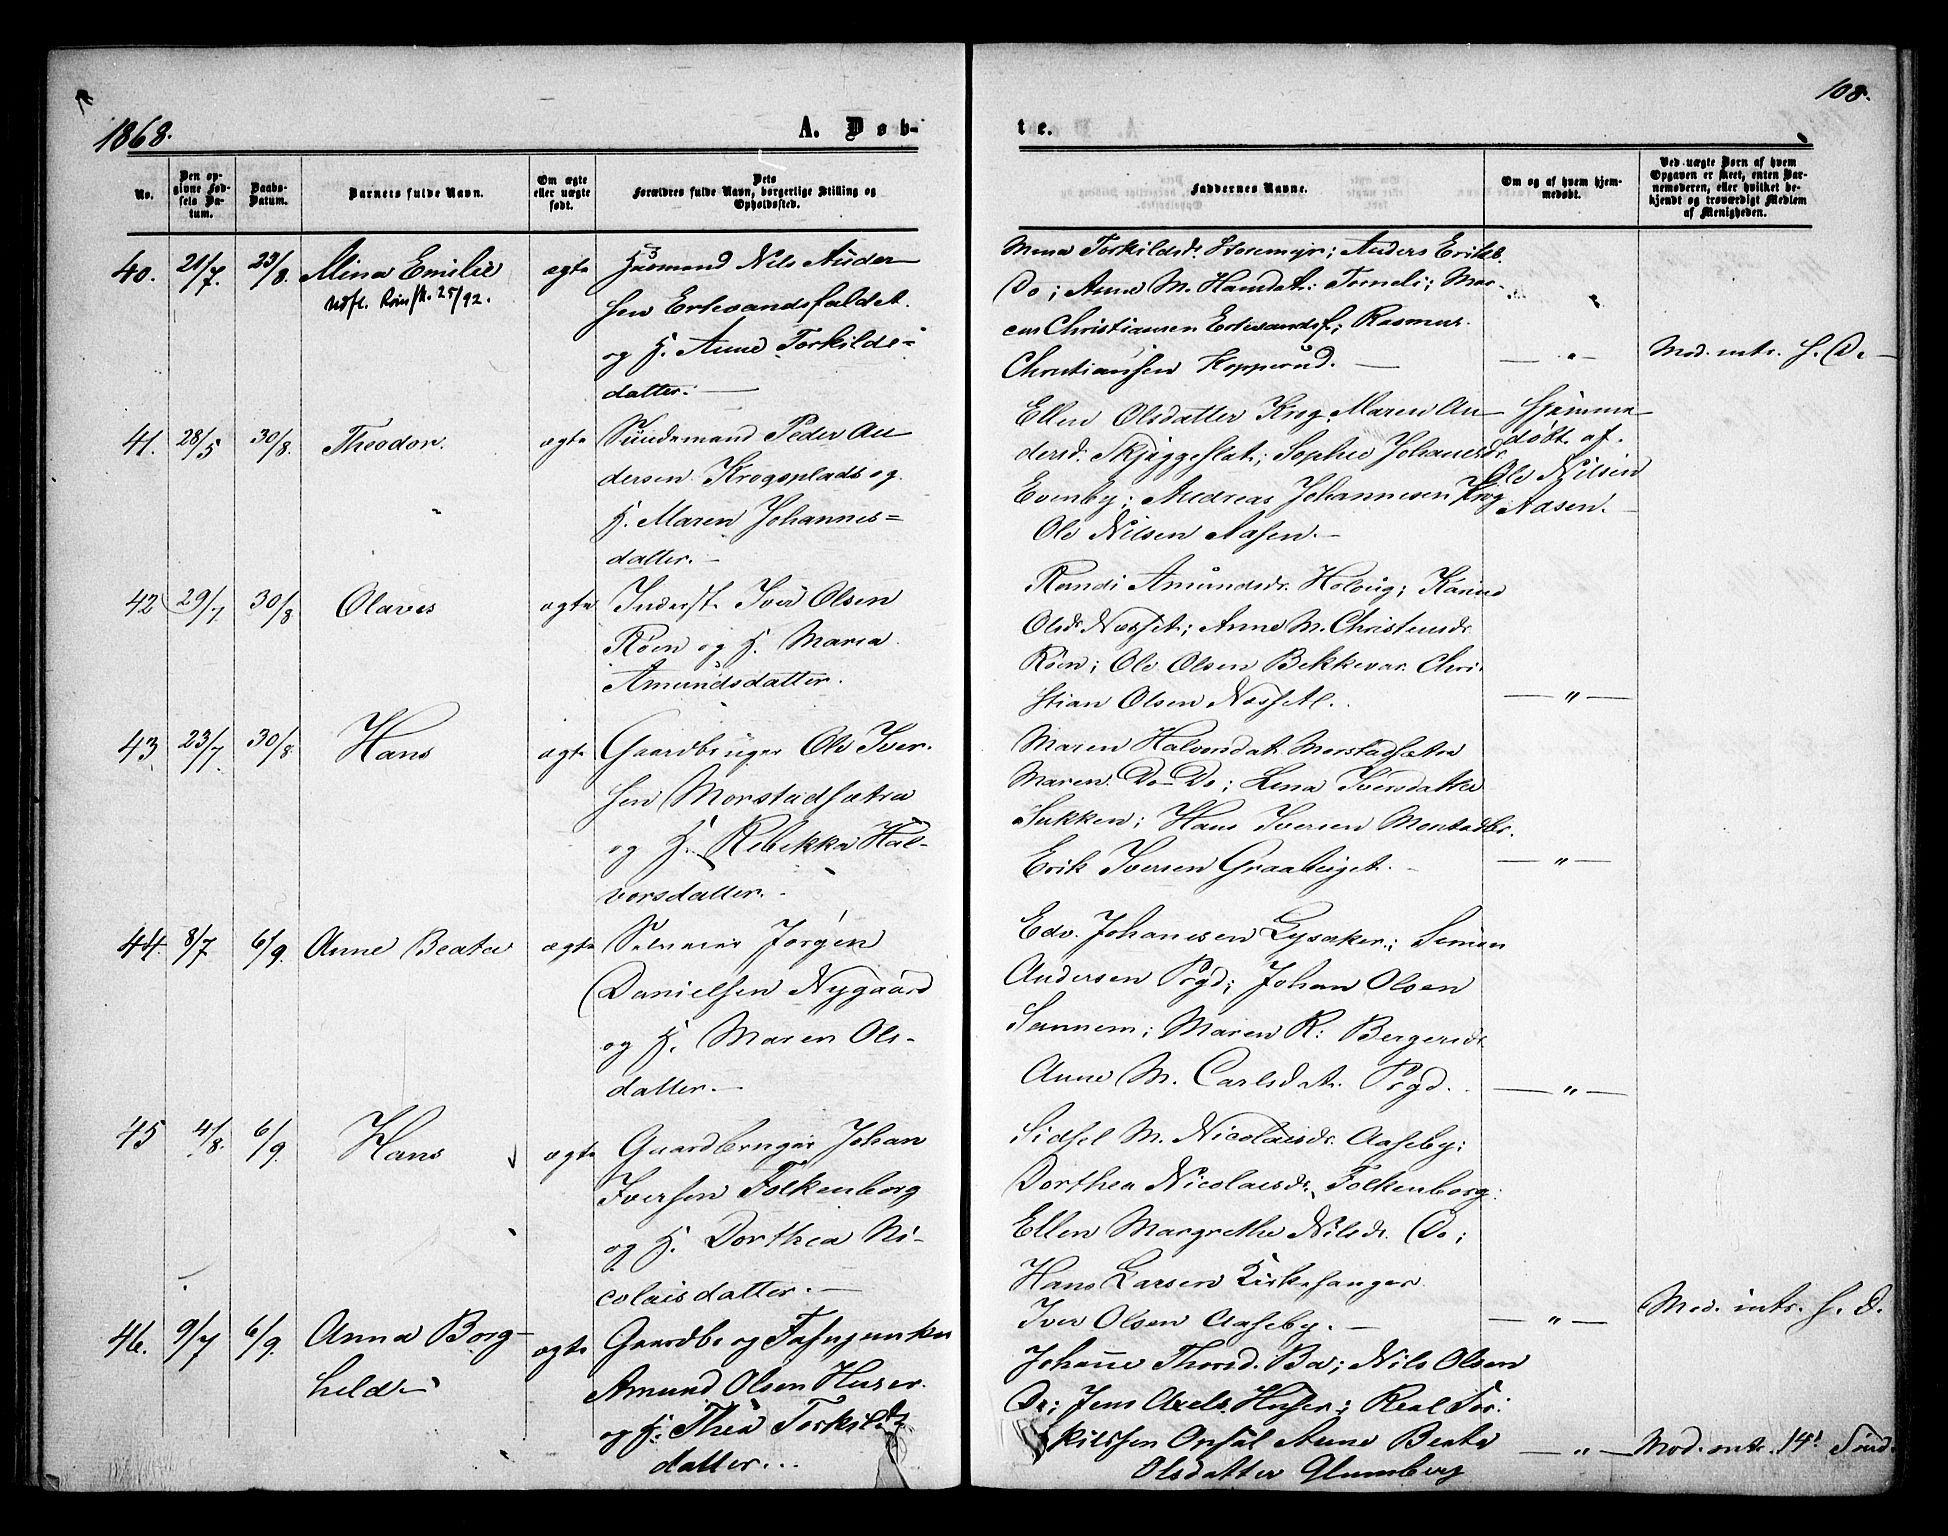 108.
1868.
A. Døb-
te.
No.
Den op-
givne Fød-
sels Da-
tum.
Daabs-
Datum.
Barnets fulde Navn.
Om ægte
eller uægte
født.
Dets
Forældres fulde Navn, borgerlige Stilling og
Opholdssted.
Faddernes Navne.
Om og af hvem hjem-
medøbt.
Ved uægte Børn af hvem
Opgaven er skeet, enten Bar-
nemoderen, eller hvilket be-
kjendt og troværdigt Medlem
af Menigheden.
40. 21/7. 23/8. Mina Emilie ægte Husmand Nils Ander-
25/92.
sen Erkvandsfaldet
og H. Anne Torkilds-
datter.
Mena Torkildsdr. Storemyr; Anders Eriks.
Do; Anne M. Hansdat: Torneli; Mar-
cus Christiansen Erkvandsf; Rasmus
Christiansen Kopperud. —
— " — Mod. intr. s. D. —
41. 28/5 30/8. Theodor. ægte Sundemand Peder An-
dersen Krogsplads og
H. Maren Johannes-
datter. —
Ellen Olsdatter Krog. Maren An-
dersd. Skjæggeslat.; Sophie Johanesdr.
Evenby; Andreas Johannesen Krog
Ole Nilsen Aasen. —
Hjemme
døbt af
Ole Nilsen
Aasen.
42 29/7 30/8 Olaves ægte Inderst. Iver Olsen
Röen og H. Maria
Amundsdatter.
Randi Amundsdr. Holvig; Karine
Olsdr. Næsset; Anne M. Christensdr.
Röen; Ole Olsen Bekkevar. Chri-
stian Olsen Næsset.
— " —
43. 23/7. 30/8 Hans ægte Gaardbruger Ole Iver-
sen Morstadsætra
og H. Rebekka Hal-
vorsdatter. -
Maren Halvorsdat. Morstadsætra
Maren Do Do; Lena Iversdatter
Sukken; Hans Iversen Morstadsr.
Erik Iversen Graabeiget. -
— " —
44. 8/7 6/9. Anne Beata ægte Jörgen
Danielsen Nygaard
og H. Maren Ols-
datter. —
Edv. Johanesen Lysaker; Simen
Andersen Prgd; Johan Olsen
Sannem; Maren K: Bergersdr.
Anne M. Carlsdatr. Prgd.
— " —
45 4/8. 6/9. Hans ægte Gaardbruger Johan
Iversen Folkenborg
og H. Dorthea Ni-
colaisdatter. —
Sidsel M. Nicolaisdr. Aaseby;
Dorthea Nicolaisdr. Folkenborg.
Ellen Margrethe Nilsdr. Do;
Hans Larsen Kirkesanger
Iver Olsen Aaseby. —
— " — Mod. intr. s. D.
46. 9/7 6/9. Anna Borg- ægte Gaardbr. og
hilde
Amund Olsen Huser.
og H. Thea Torkilds
datter...
Johanne Thorsd. Bø; Nils Olsen
Do; Jens Axels. Huser; Real Tor-
kilssen Opsal Anne Beate
Olsdatter
— " — Mod. intr. 14. Sönd.